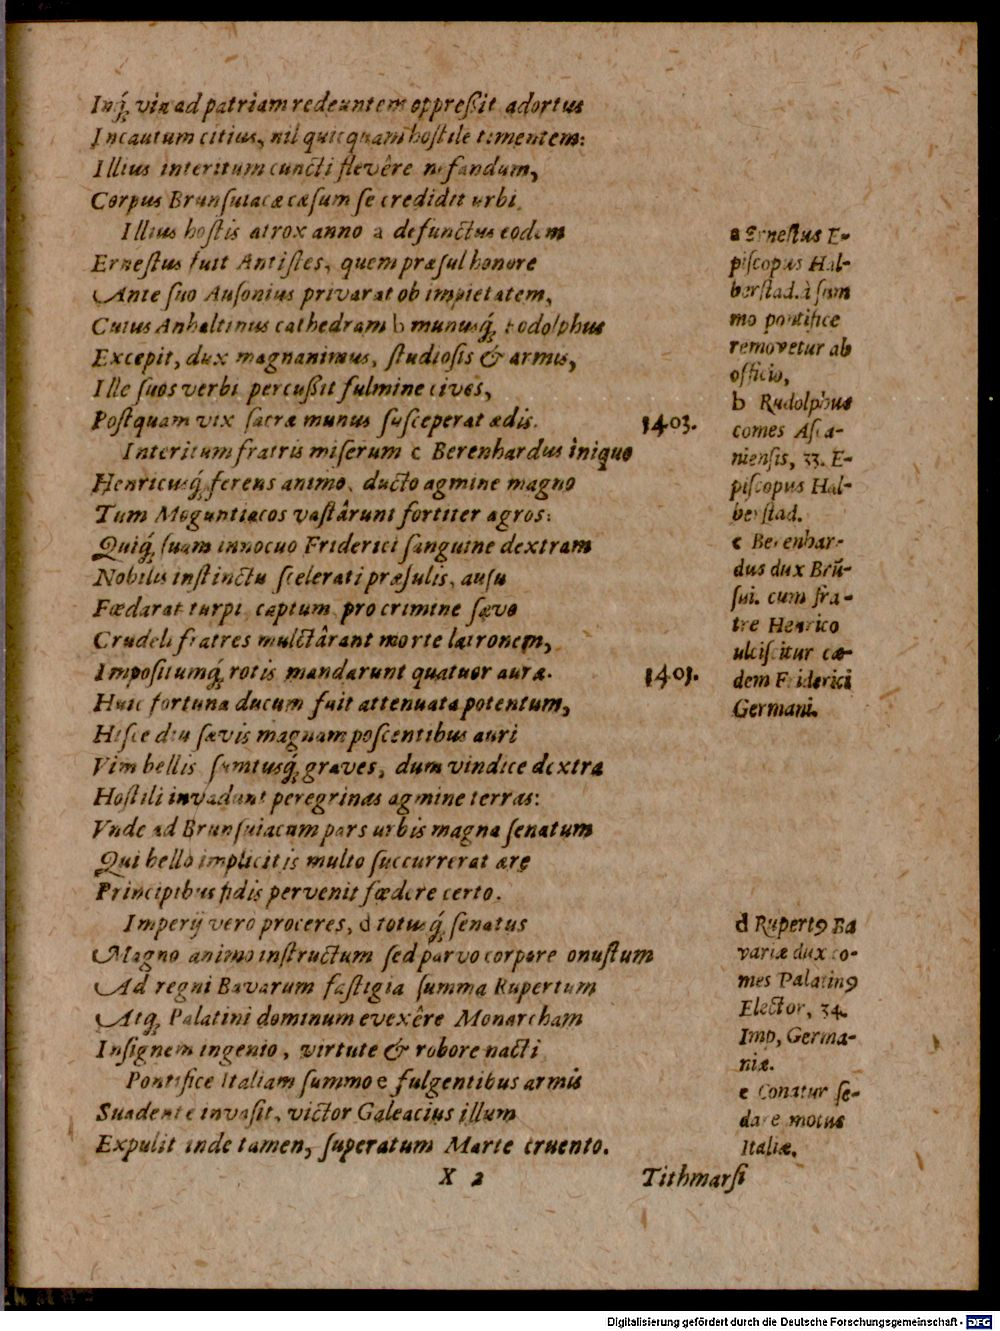 Inq́; via ad patriam redeuntem oppreßit adortus
Incautum citius, nil quicquam hostile timentem:
Illius interitum cuncti flevêre nefandum,
Corpus Brunsuiacæ cæsum se credidit urbi.
Illius hostis atrox anno a defunctus eodem
Ernestus fuit Antistes, quem præsul honore
Ante suo Ausonius privarat ob impietatem,
Cuius Anhaltinus cathedram b munusq́; Rodolphus
Excepit, dux magnanimus, studiosis & armis,
Ille suos verbi percußit fulmine cives,
Postquam vix sacræ munus susceperat ædis.
Interitum fratris miserum c Berenhardus inique
Henricusq́; ferens animo, ducto agmine magno
Tum Moguntiacos vastârunt fortiter agros:
Quiq́; suam innocuo Friderici sanguine dextram
Nobilis instinctu scelerati præsulis, ausu
Fœdarat turpi, captum pro crimine sævo
Crudeli fratres mulctârant morte latronem,
Impositumq́; rotis mandarunt quatuor auræ.
Huic fortuna ducum fuit attenuata potentum,
Hisce diu sævis magnam poscentibus auri
Vim bellis sumtusq́; graves, dum vindice dextra
Hostili invadunt peregrinas agmine terras:
Vnde ad Brunsuiacum pars urbis magna senatum
Qui bello implicitis multo succurrerat ære
Principibus fidis pervenit fœdere certo.
Imperij vero proceres, d totusq́; senatus
Magno animo instructum sed parvo corpore onustum
Ad regni Bavarum fastigia summa Rupertum
Atq́; Palatini dominum evexêre Monarcham
Insignem ingenio, virtute & robore nacti.
Pontifice Italiam summo e fulgentibus armis
Suadente invasit, victor Galeacius illum
Expulit inde tamen, superatum Marte cruento.
X 2
Tithmarsi
a Ernestus E-
piscopus Hal-
berstad. à sum
mo pontifice
removetur ab
officio,
b Rudolphus
comes Asca-
niensis, 33. E-
piscopus Hal-
berstad.
c Berenhar-
dus dux Brũ-
sui. cum fra-
tre Henrico
ulciscitur cæ-
dem Friderici
Germani.
1403.
1401.
d Rupertꝰ Ba
variæ dux co-
mes Palatinꝰ
Elector, 34.
Imp, Germa-
niæ.
e Conatur se-
dare motus
Italiæ.
Digitalisierung gefördert durch die Deutsche Forschungsgemeinschaft - DFG